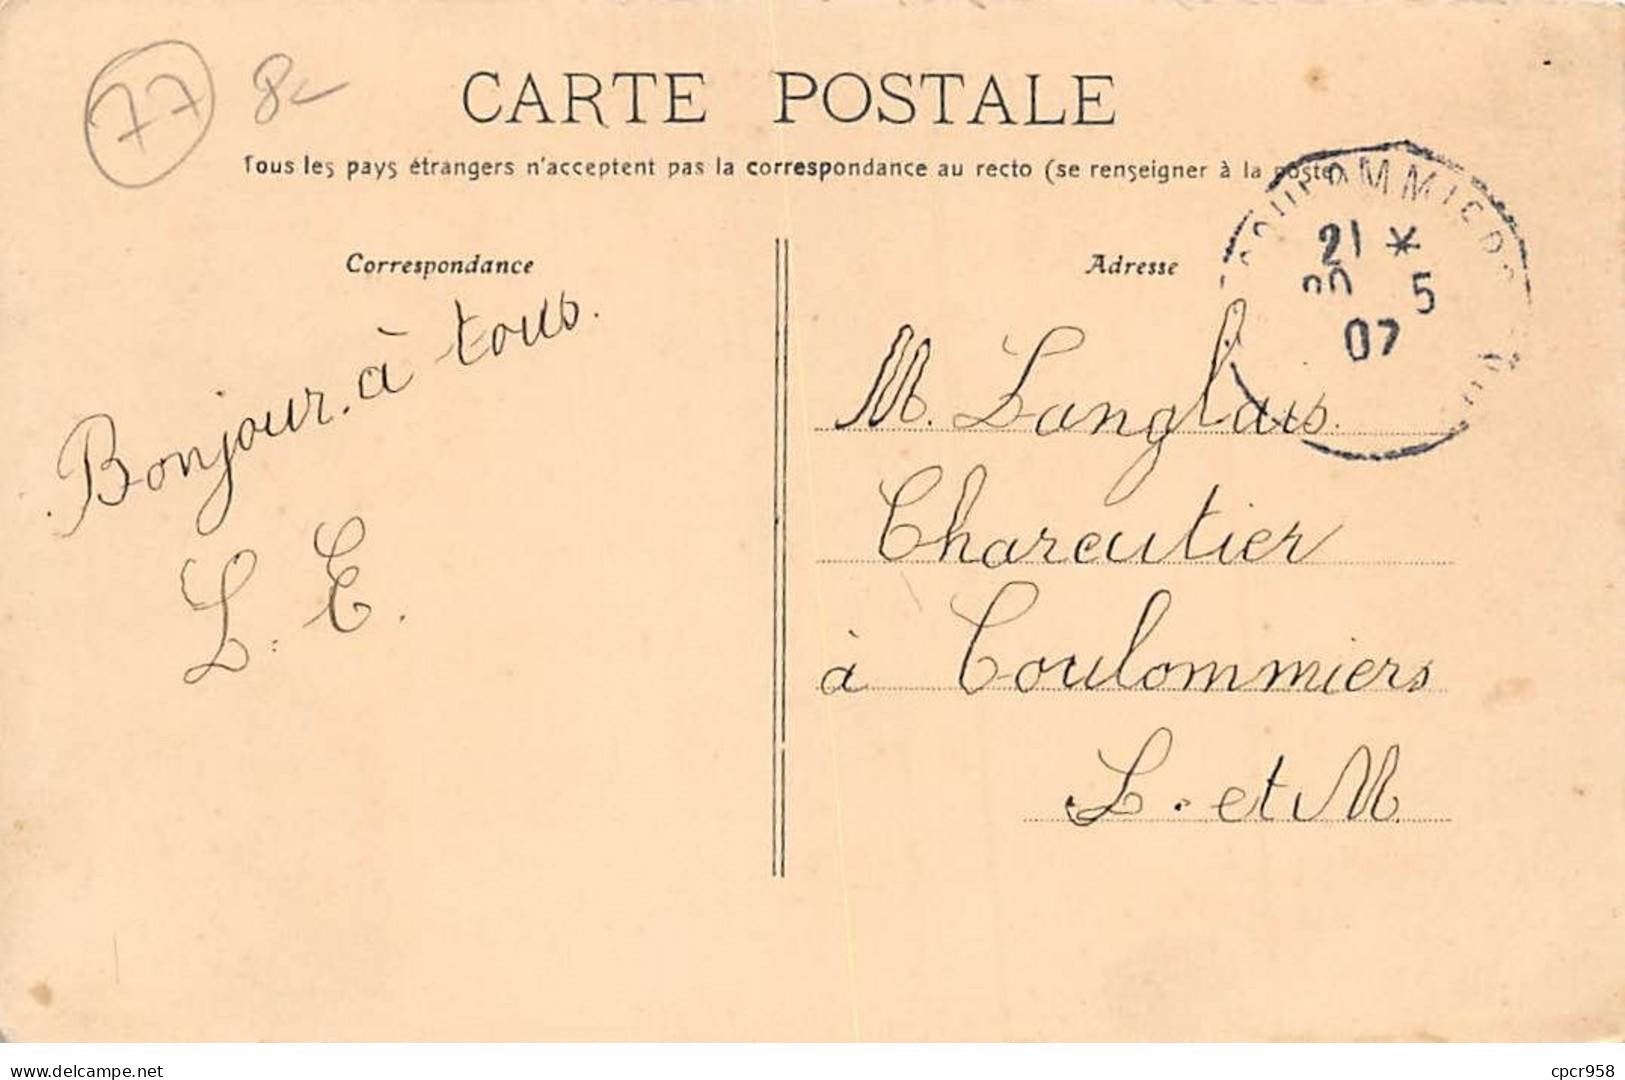 77 8
CARTE POSTALE
Tous les pays étrangers n'acceptent pas la correspondance au recto (se renseigner à la poste)
COULOMMIERS
21 *
20 5
07
Correspondance
Bonjour à tous.
L. E.
Adresse
M. Langlais
Charcutier
à Coulommiers
S. et M.
delcampe.net
cpcr958